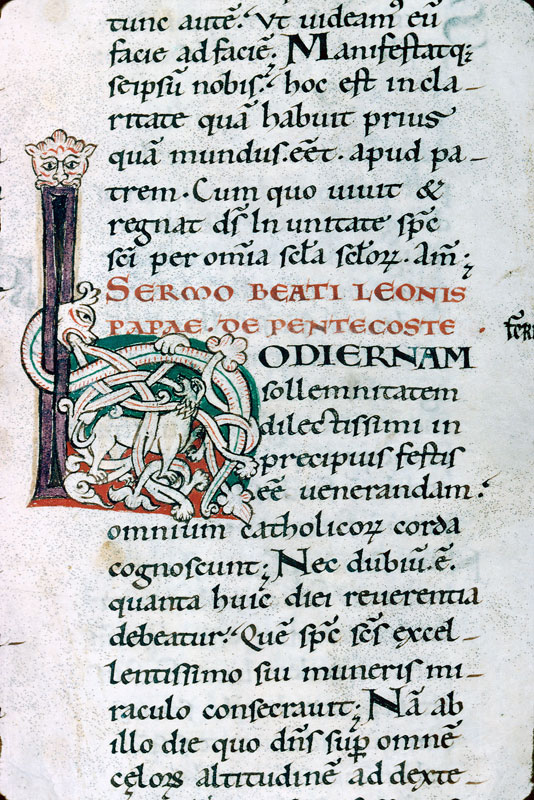 tunc autē. Ut uideam᾽ eū
facie ad faciē; Manifestatq;
seipsū nobis. hoc est in cla-
ritate quā habuit prius
quā mundus. eēt. apud pa-
trem. Cum quo uiuit &
regnat ds̄ In unitate sp̄c
sc̄i per om̄ia sc̄la sc̄lorꝝ. Am̄;
SERMO BEATI LEONIS
PAPAE. DE PENTECOSTE.
HODIERNAM
sollemnitatem
dilectissimi in
precipuis festis
eē̄ uenerandam.
omnium catholicorꝝ corda
cognoscunt; Nec dubiū. ē.
quanta huic diei reuerentia
debeatur. Quē sp̄c sc̄s excel-
lentissimo sui muneris mi-
raculo consecrauit; Nā ab
illo die quo dn̄s sup̱ omnē
cęlorꝝ altitudinē ad dexte-